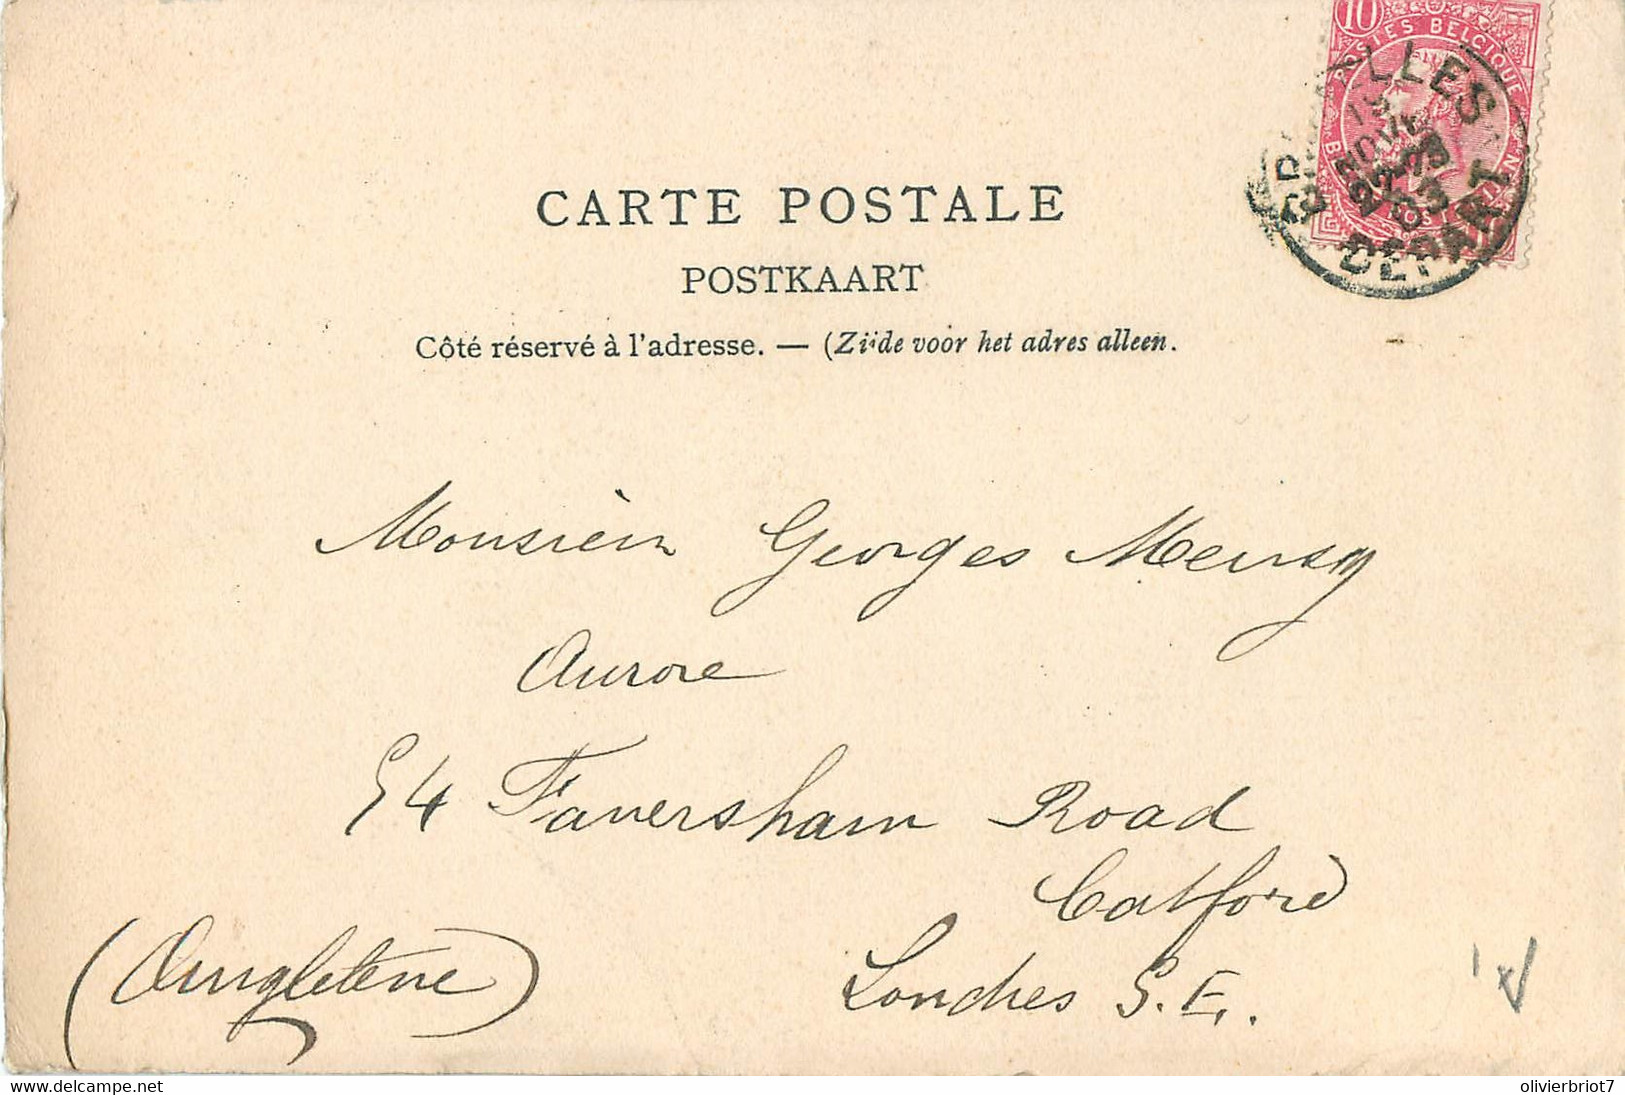 10
POSTES BELGIQUE
DEPART
CARTE POSTALE
POSTKAART
Côté réservé à l'adresse. — (Zijde voor het adres alleen.
Monsieur Georges
Aurore
54 Faversham Road
Catford
Londres S. E.
(Angleterre)
delcampe.net
olivierbriot7